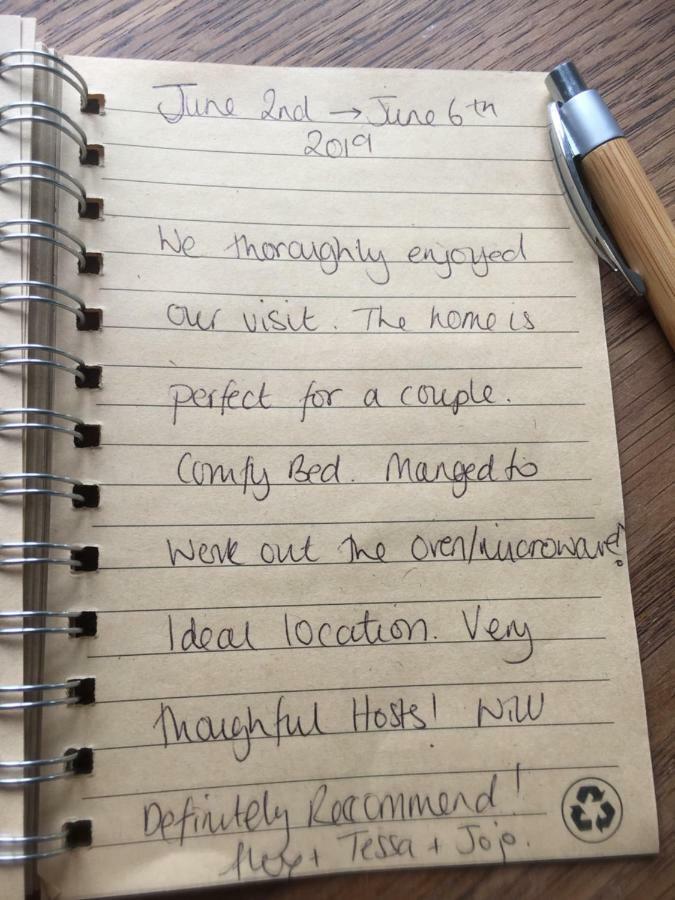 June 2nd → June 6th
2019
We thoroughly enjoyed
our visit. The home is
perfect for a couple.
Comfy Bed. Manged to
Work out the oven/microwave!
Ideal location. Very
thoughful Hosts! Will
Definitely Recommend!
+ Tessa + Jojo.